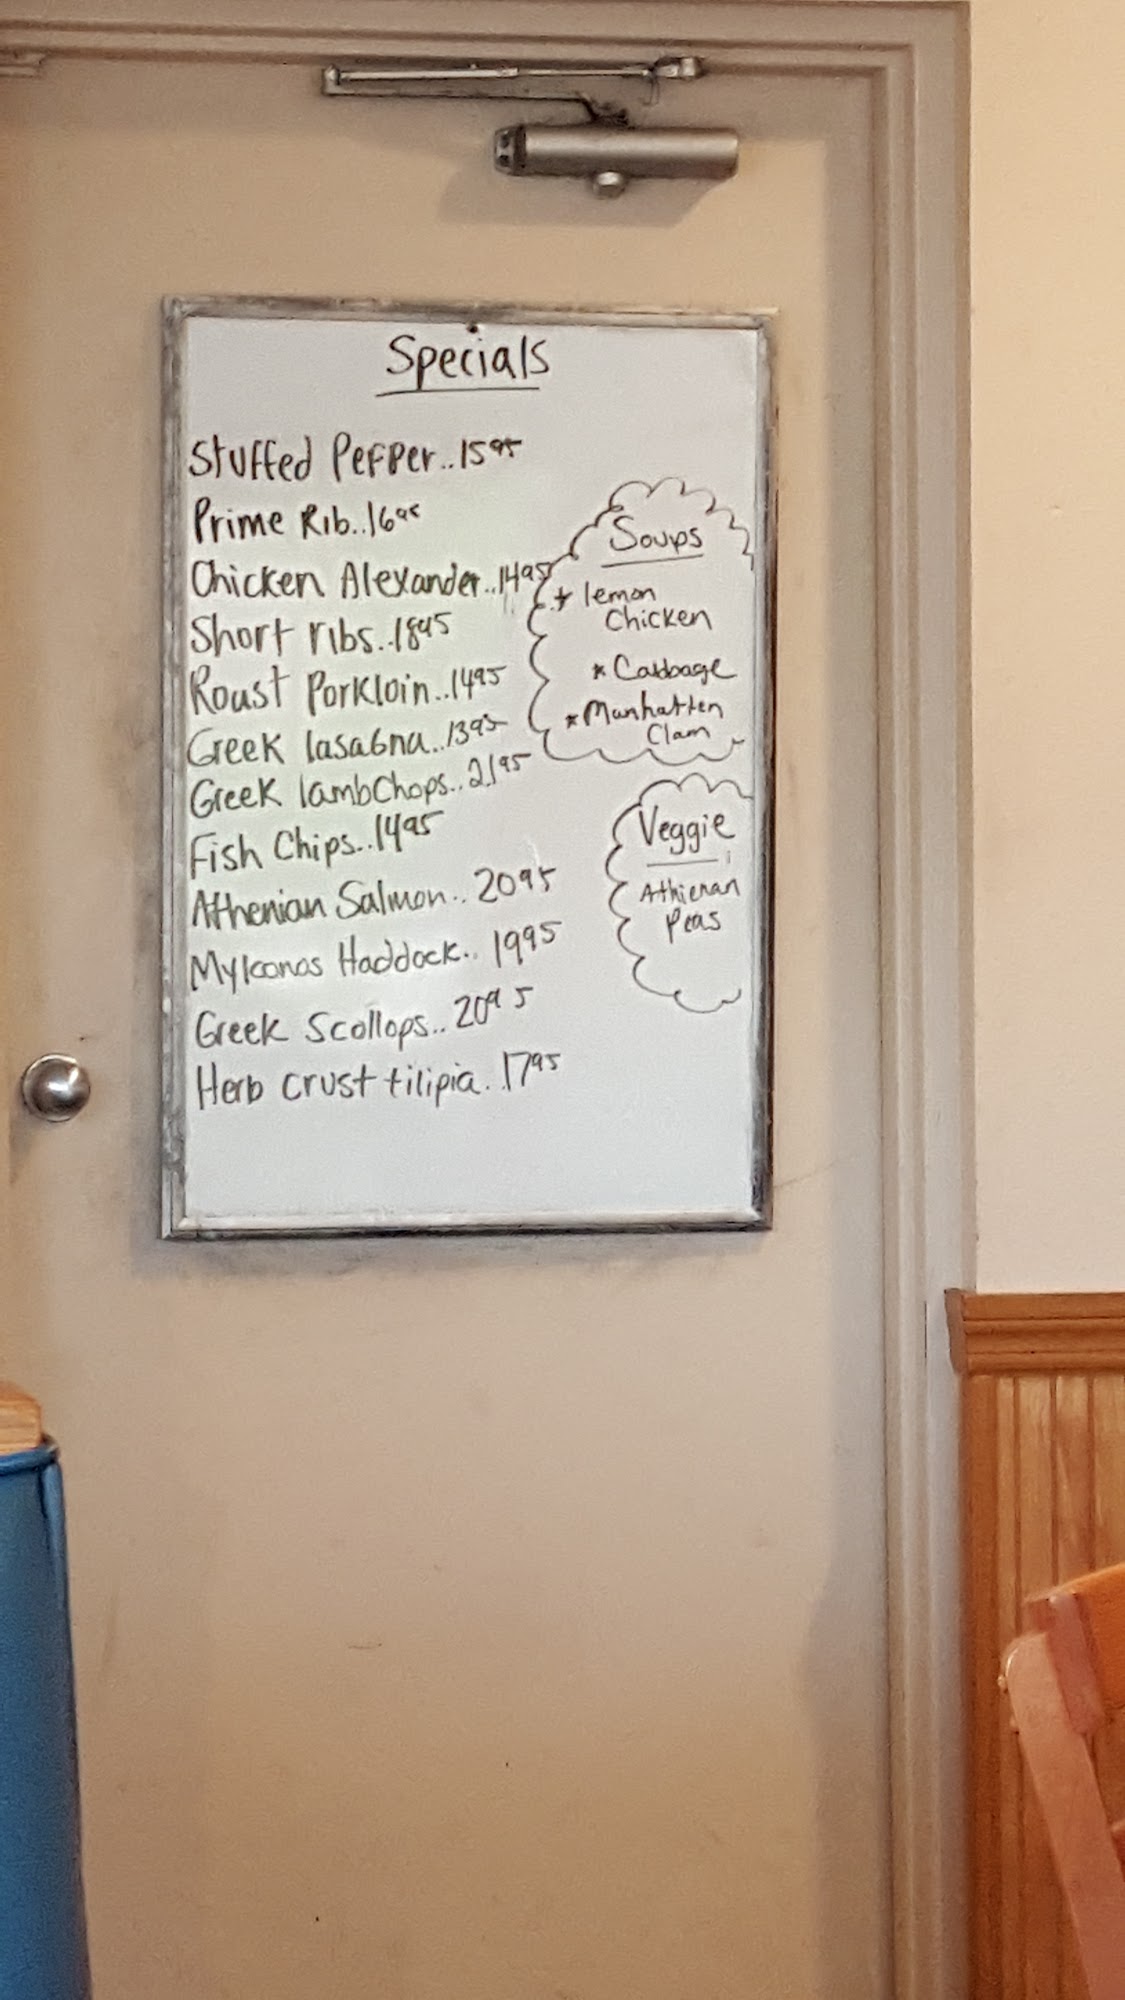 Specials
Stuffed Pepper..15 95
Prime Rib..16 95
Chicken Alexander..14 95
Short ribs..18 95
Roast Porkloin..14 95
Greek lasagna..13 95
Greek lambChops..21 95
Fish Chips..14 95
Athenian Salmon..20 95
Mykonos Haddock..19 95
Greek Scollops..20 95
Herb crust tilipia.17 95
Soups
* lemon
Chicken
* Cabbage
* Manhatten
Clam
Veggie
Athienan
Peas